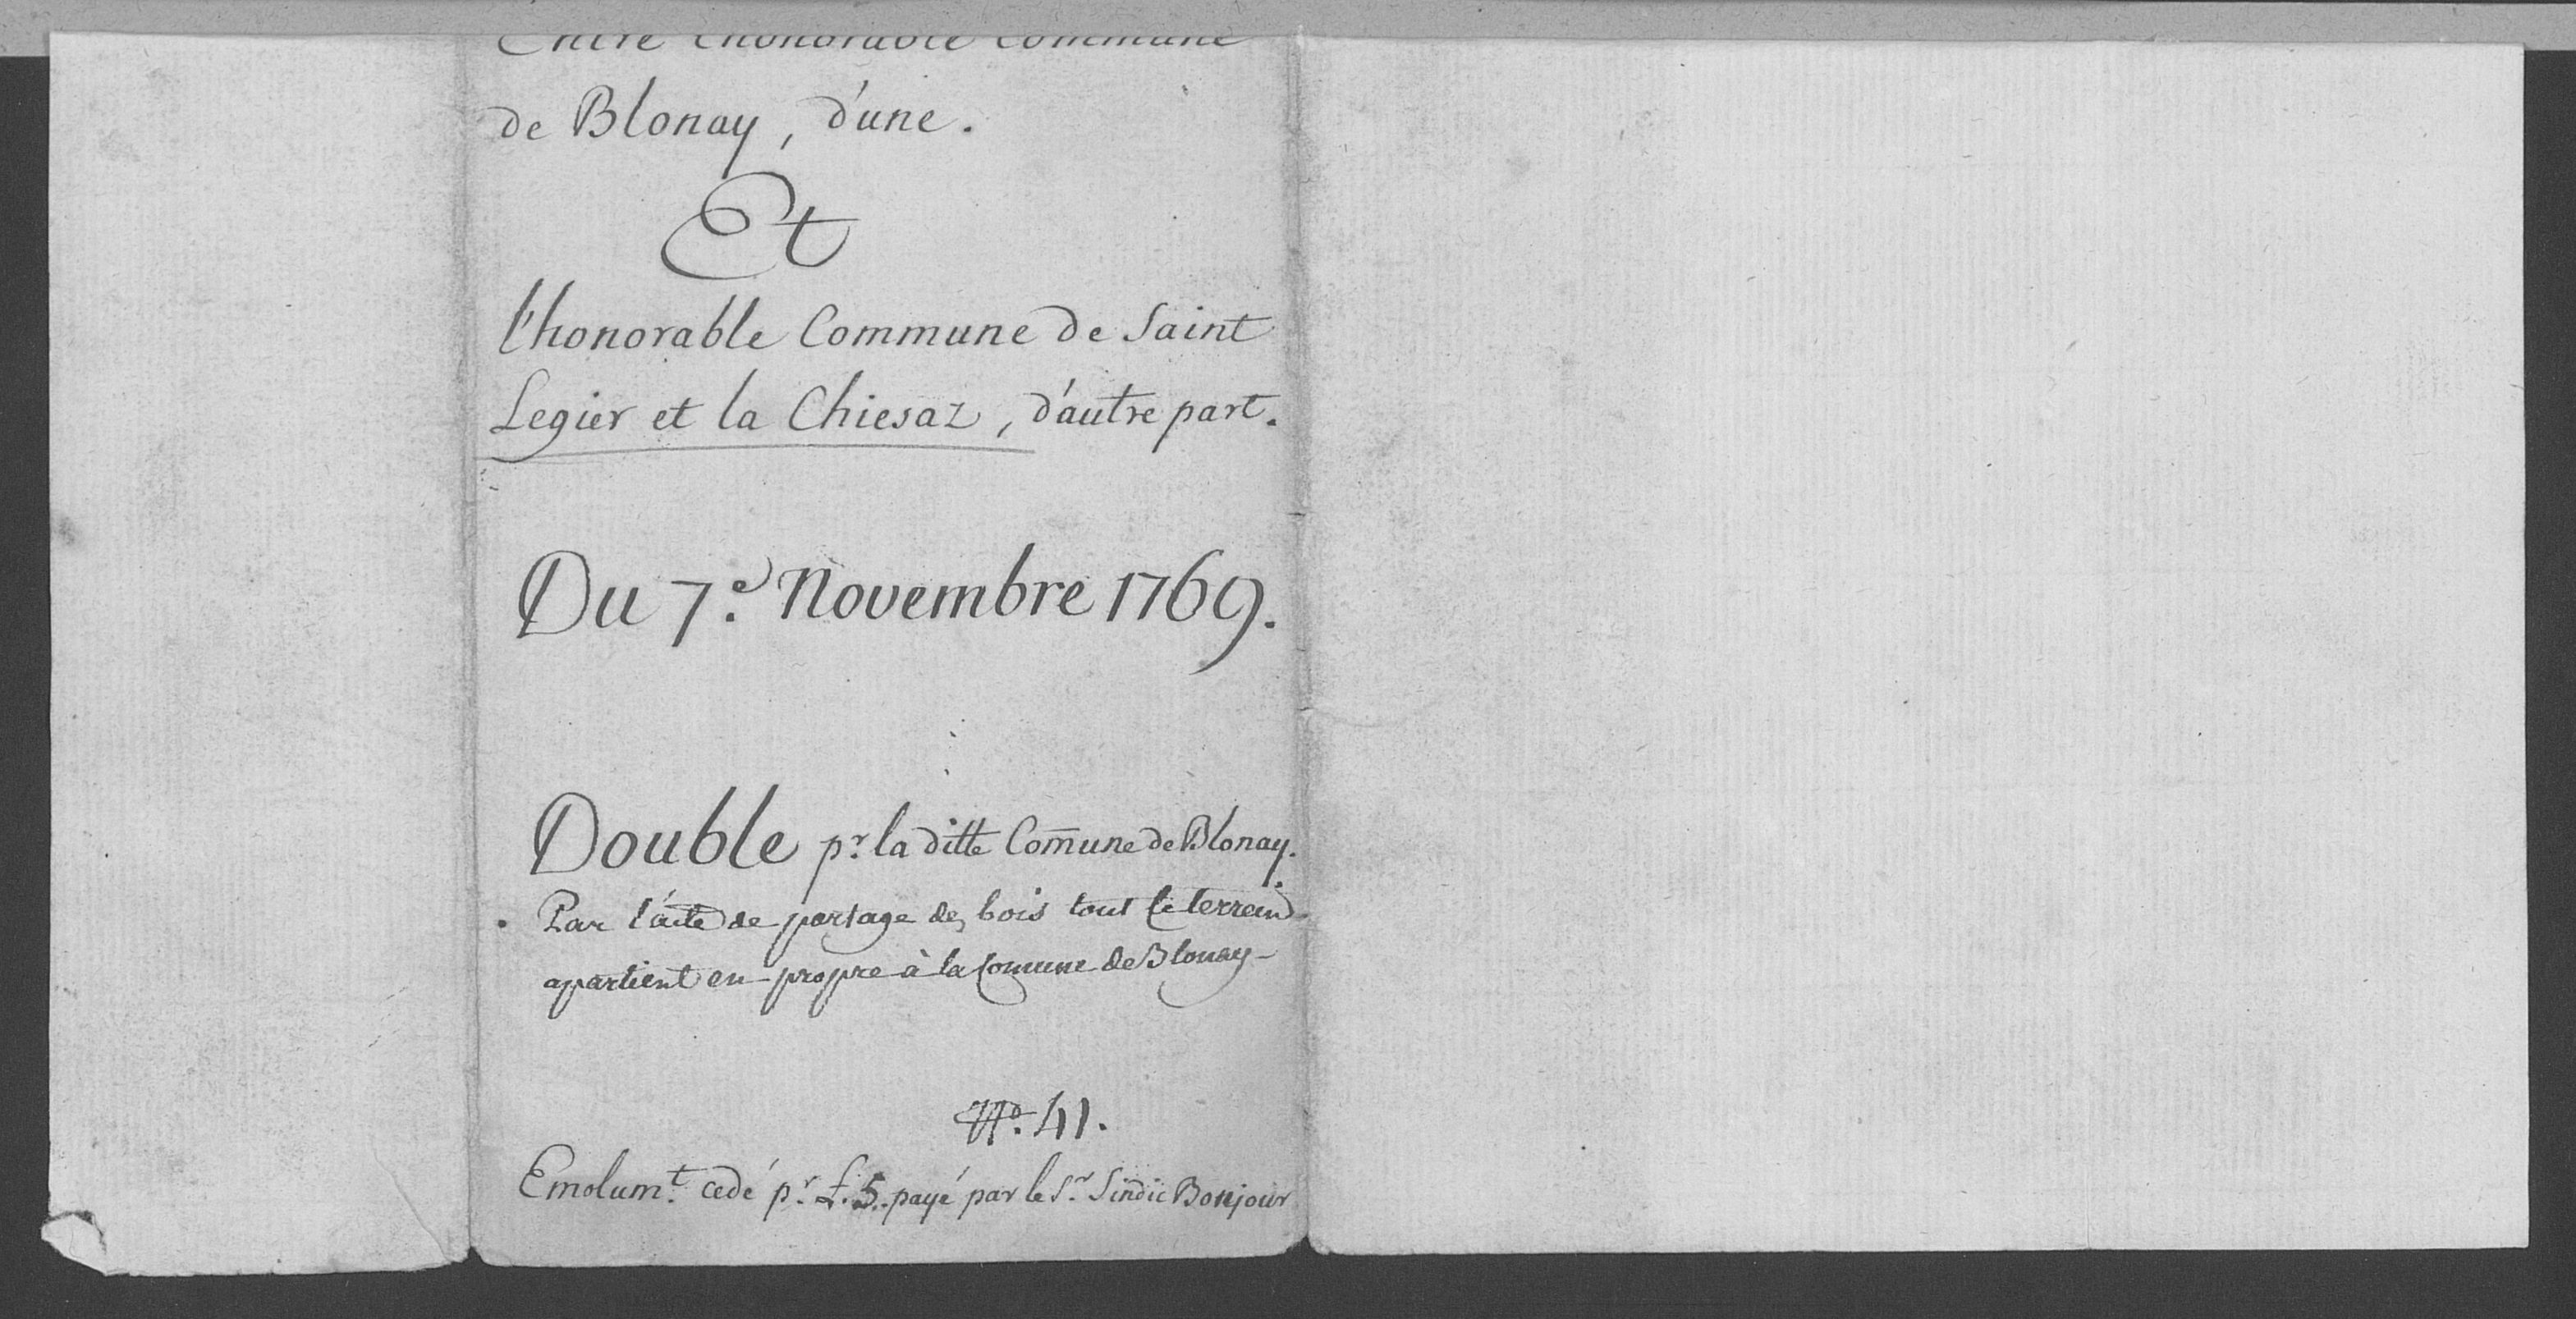 Entre l'honorable Commune
de Blonay, d'une.
Et
l'honorable Commune de Saint
Legier et la Chiesaz, d'autre part.
Du 7.e Novembre 1769.
Double pr. la ditte Com̄une de Blonay.
Par l'acte de partage des bois tout le terrein
apartient en propre à la Comune de Blonay
No. 41.
Emolumt. cedé pr. £. 5. payé par le Sr. Sindic Bonjour